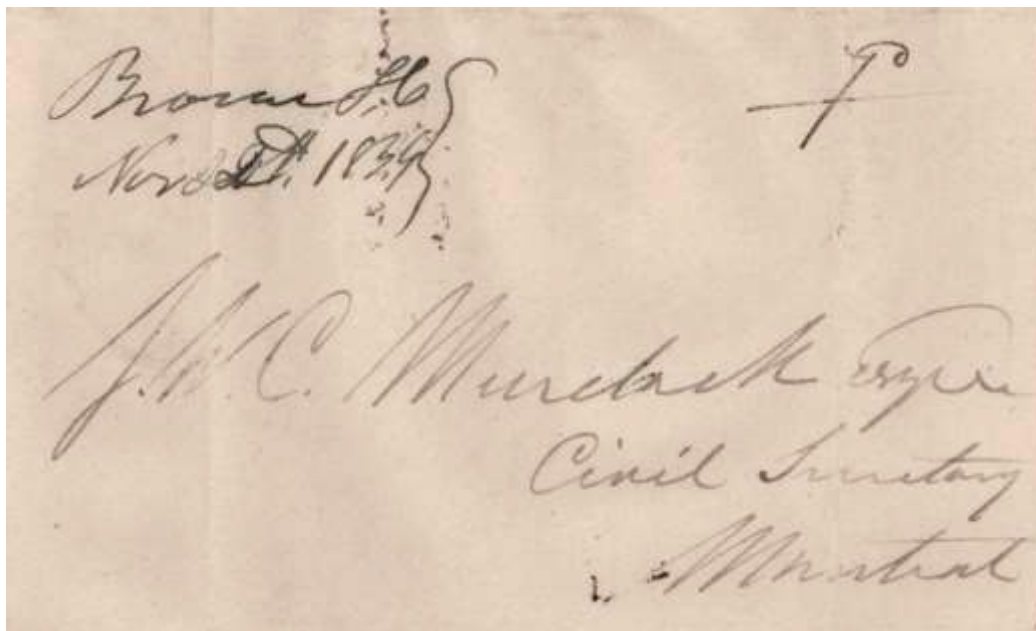 Brome L.C
Nov 1839
J.W.C. Murdock Esqre
Civil Secretary
Montreal